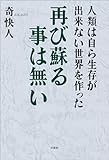 人類は自ら生存が
出来ない世界を作った
再び蘇る
事は無い
奇快人